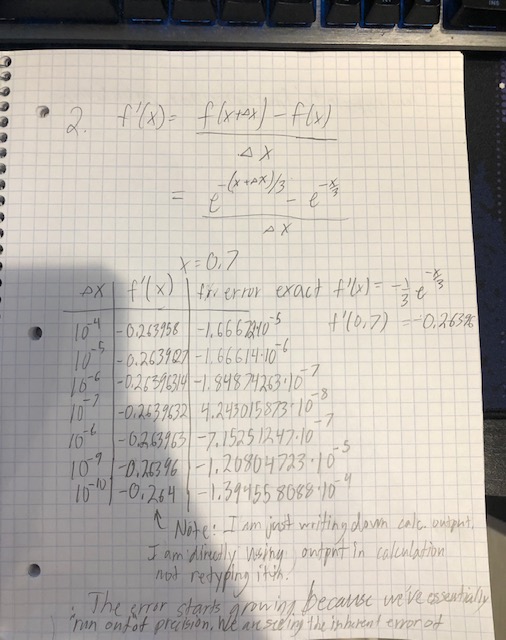 2. f'(x) = f(x+Δx) - f(x) / Δx
= e^-(x+Δx)/3 - e^-x/3 / Δx
x = 0.7
Δx | f'(x) | error exact f'(x) = -1/3 e^-x/3
f'(0.7) = -0.26396
10^-4 | -0.263958 | 10^-5
10^-5 | -1.66614·10^-6
10^-6 | -0.26396314 | -1.84874263·10^-7
10^-7 | -0.2639632 | 4.243015873·10^-8
-0.263963 | -7.15251247·10^-7
10^-9 | -0.26396 | -1.20804723·10^-5
10^-10 | -0.264 | -1.394558088·10^-4
↑ Note: I am just writing down calc. output,
I am directly using output in calculation
not retyping it in.
∴ The error starts growing because we've essentially
run out of precision. We are seeing the inherent error of